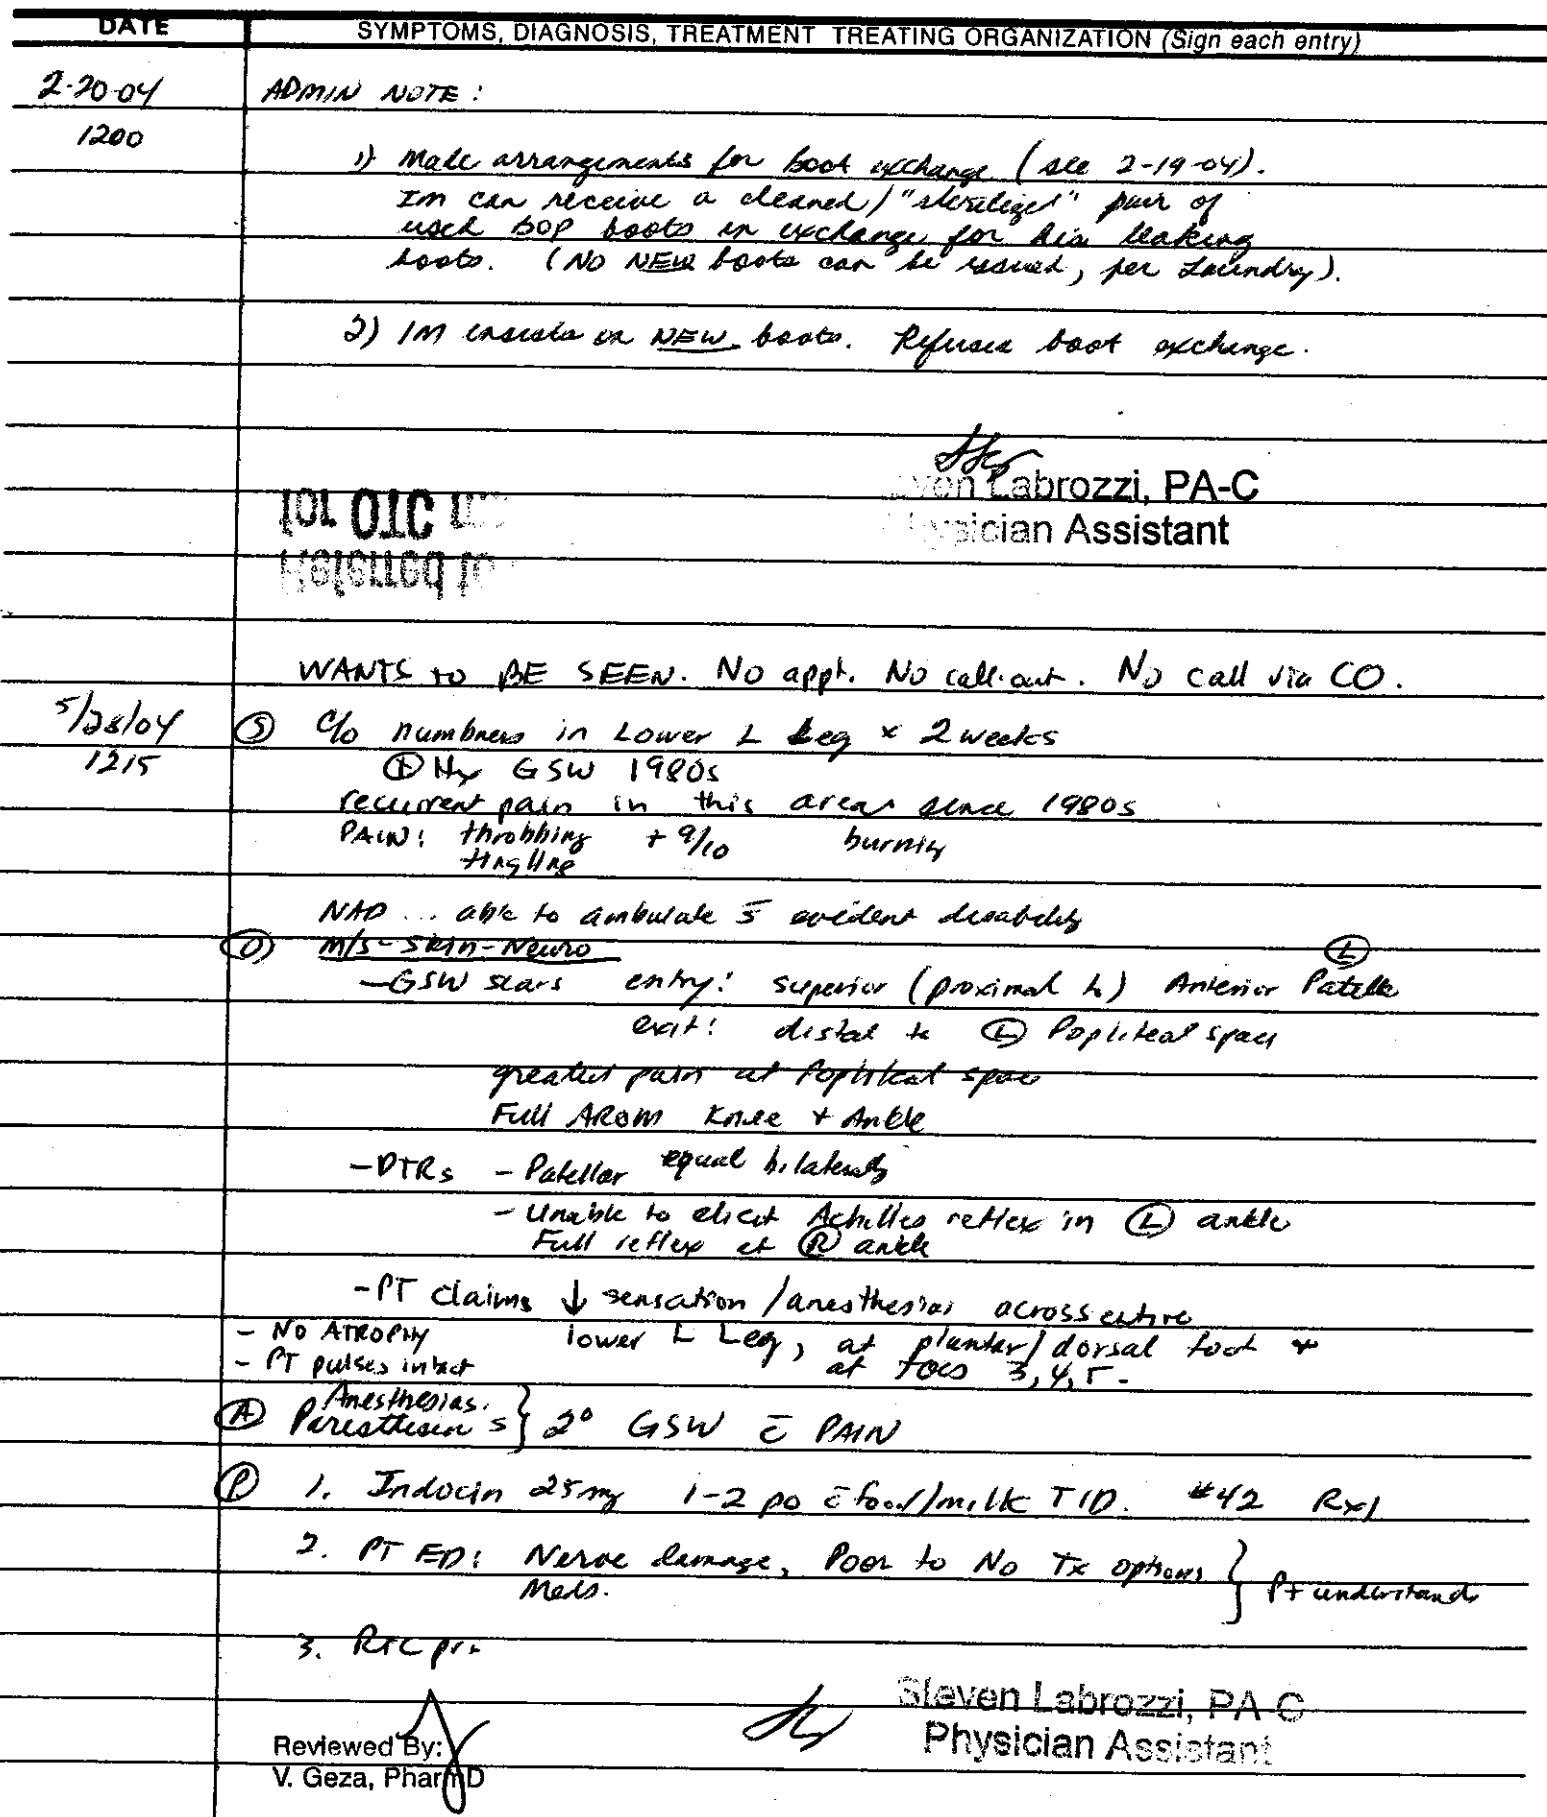 DATE SYMPTOMS, DIAGNOSIS, TREATMENT TREATING ORGANIZATION (Sign each entry)
2-20-04 ADMIN NOTE:
1200
1) Made arrangements for boot exchange (see 2-19-04).
Im can receive a cleaned / "sterilized" pair of
used BOP boots in exchange for his leaking
boots. (NO NEW boots can be issued, per Laundry).
2) IM insists on NEW boots. Refuses boot exchange.
ven Labrozzi, PA-C
ysician Assistant
for OTC
Referred to
WANTS to BE SEEN. No appt. No call-out. No call via CO.
5/28/04 (S) C/o numbness in Lower L Leg x 2 weeks
1215 (+) Hx GSW 1980s
recurrent pain in this area since 1980s
PAIN: throbbing + 9/10 burning
tingling
NAD ... able to ambulate s̄ evident disability
(O) M/S-Skin-Neuro (L)
-GSW scars entry: superior (proximal to) Anterior Patella
exit: distal to (L) Popliteal space
greatest pain at Popliteal space
Full AROM Knee + Ankle
-DTRs - Patellar equal bilaterally
- Unable to elicit Achilles reflex in (L) ankle
Full reflex at (R) ankle
-PT claims ↓ sensation/anesthesias across entire
- NO ATROPHY lower L Leg, at plantar/dorsal foot +
- PT pulses intact at toes 3,4,5-
Anesthesias.
(A) Paresthesias } 2° GSW c̄ PAIN
(P) 1. Indocin 25mg 1-2 po c̄ food/milk TID. #42 Rx1
2. PT ED: Nerve damage, Poor to No Tx options } Pt understands
Meds.
3. RTC prn
Steven Labrozzi, PA-C
Physician Assistant
Reviewed By:
V. Geza, PharmD